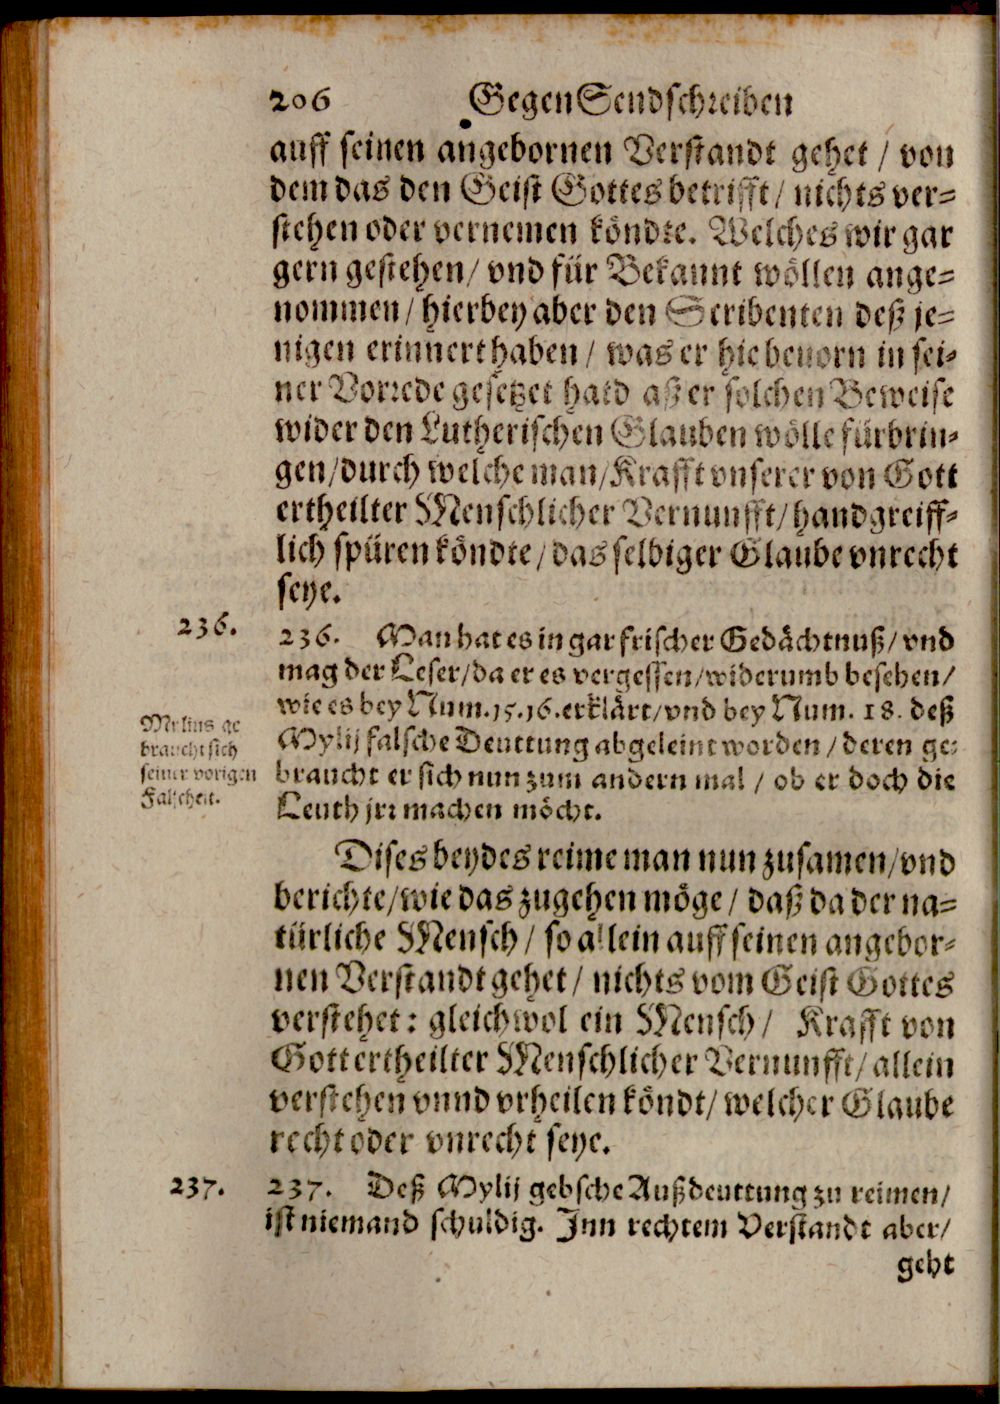 206 GegenSendschreiben
auff seinen angebornen Verstandt gehet / von
dem das den Geist Gottes betrifft / nichts ver=
stehen oder vernemen köndte. Welches wir gar
gern gestehen / vnd für Bekannt wöllen ange=
nommen / hierbey aber den Scribenten deß je=
nigen erinnert haben / was er hiebeuorn in sei=
ner Vorrede gesetzet hatd aß er solchen Beweise
wider den Lutherischen Glauben wölle fürbrin=
gen / durch welche man / Krafft vnserer von Gott
ertheilter Menschlicher Vernunfft / handgreiff=
lich spüren köndte / das selbiger Glaube vnrecht
seye.
236.
236. Man hat es in gar frischer Gedächtnuß / vnd
mag der Leser / da er es vergessen / widerumb besehen /
wie es bey Num. 15. 16. erklärt / vnd bey Num. 18. deß
Mylij falsche Deuttung abgeleint worden / deren ge=
braucht er sich nun zum andern mal / ob er doch die
Leuth jrr machen möcht.
Mylius ge
braucht sich
seiner vorigen
Falscheit.
Dises beydes reime man nun zusamen / vnd
berichte / wie das zugehen möge / daß da der na=
türliche Mensch / so allein auff seinen angebor=
nen Verstandt gehet / nichts vom Geist Gottes
verstehet : gleichwol ein Mensch / Krafft von
Gott ertheilter Menschlicher Vernunfft / allein
verstehen vnnd vrheilen köndt / welcher Glaube
recht oder vnrecht seye.
237.
237. Deß Mylij gebsche Außdeuttung zu reimen /
ist niemand schuldig. Jnn rechtem Verstandt aber /
geht